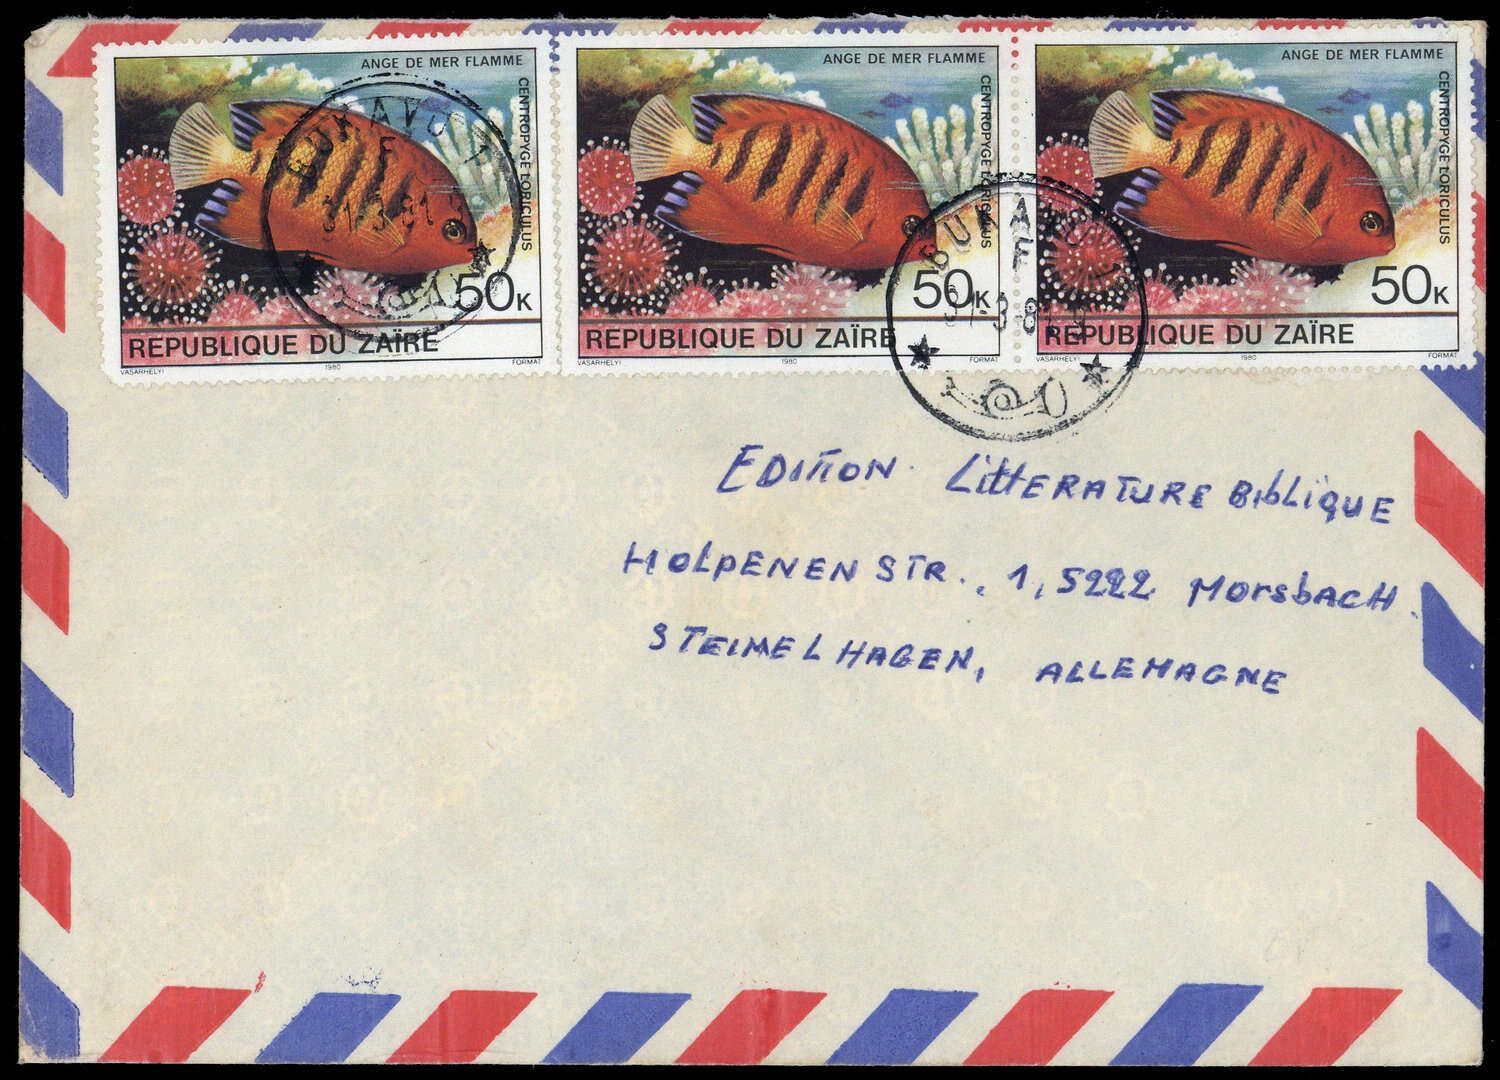 ANGE DE MER FLAMME
CENTROPYGE LORICULUS
50K
REPUBLIQUE DU ZAÏRE
VASARHELYI 1980 FORMAT
BUKAVU
F
31-3-81
ANGE DE MER FLAMME
CENTROPYGE LORICULUS
50K
REPUBLIQUE DU ZAÏRE
VASARHELYI 1980 FORMAT
ANGE DE MER FLAMME
CENTROPYGE LORICULUS
50K
REPUBLIQUE DU ZAÏRE
VASARHELYI 1980 FORMAT
BUKAVU
F
31-3-81
EDITION LittERATURE BiblIQUE
HOLPENENSTR., 1, 5222 MorsbACH.
STEIMELHAGEN, ALLEMAGNE